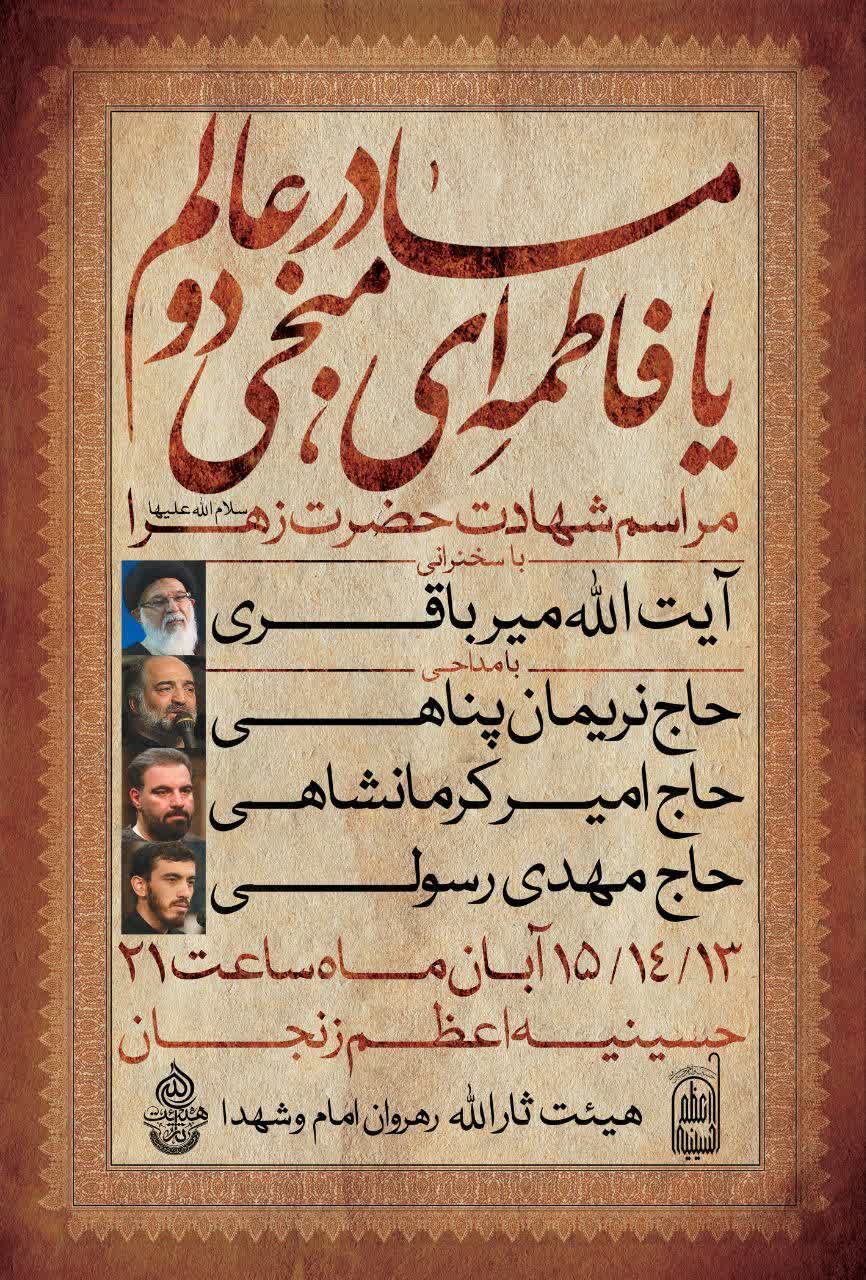 یا فاطمه ای منجی دو عالم مادر
مراسم شهادت حضرت زهرا سلام الله علیها
با سخنرانی
آیت الله میرباقری
با مداحی
حاج نریمان پناهی
حاج امیر کرمانشاهی
حاج مهدی رسولی
۱۳/۱٤/۱۵ آبان ماه ساعت ۲۱
حسینیه اعظم زنجان
هیئت ثارالله رهروان امام و شهدا
حسینیه اعظم